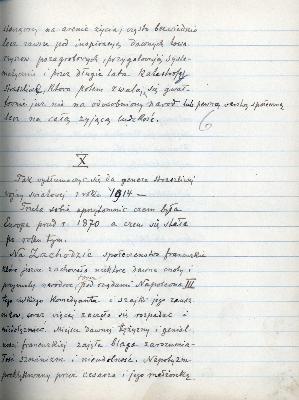 stawiony na arenie życia, często bezwiednie
lecz zawsze pod inspiracją dawnych towa
rzyszy pozagrobowych, przygotowują syste-
matycznie i przez długie lata katastrofę
straszliwą, która potem zwala się gwał
townie już nie na odosobniony naród lub pewną
lecz na całą żyjącą ludzkość.
6
X
Tak wytłumaczyć się da geneza straszliwej
wojny światowej z roku 1914 —
Trzeba sobie uprzytomnić czem była
Europa przed r. 1870 a czem się stała
po roku tym.
Na Zachodzie społeczeństwo francuskie
które jeszcze zachowało niektóre dawne cnoty i
przymioty narodowe, pod rządami Napoleona III
tego wielkiego Komedyanta i szajki jego zausz
ników coraz więcej zaczęło się rozpadać i
nikczemnieć. Miejsce dawnej tężyzny i genial
ności francuskiej zajęła blaga zarozumia-
łość i nieudolność. Nepotyzm
praktykowany przez cesarza i jego małżonkę